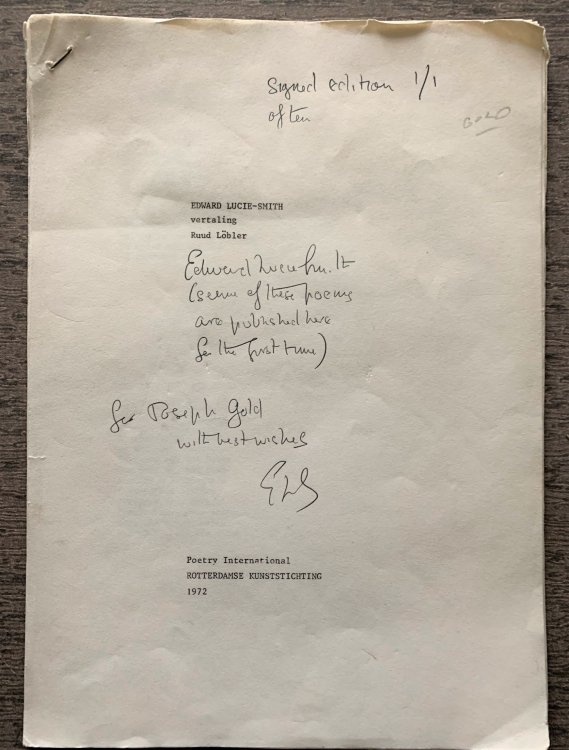 Signed edition 1/1
of ten
GOLD
EDWARD LUCIE-SMITH
vertaling
Ruud Löbler
Edward Lucie-Smith
(some of these poems
are published here
for the first time)
for Joseph Gold
with best wishes
ELS
Poetry International
ROTTERDAMSE KUNSTSTICHTING
1972